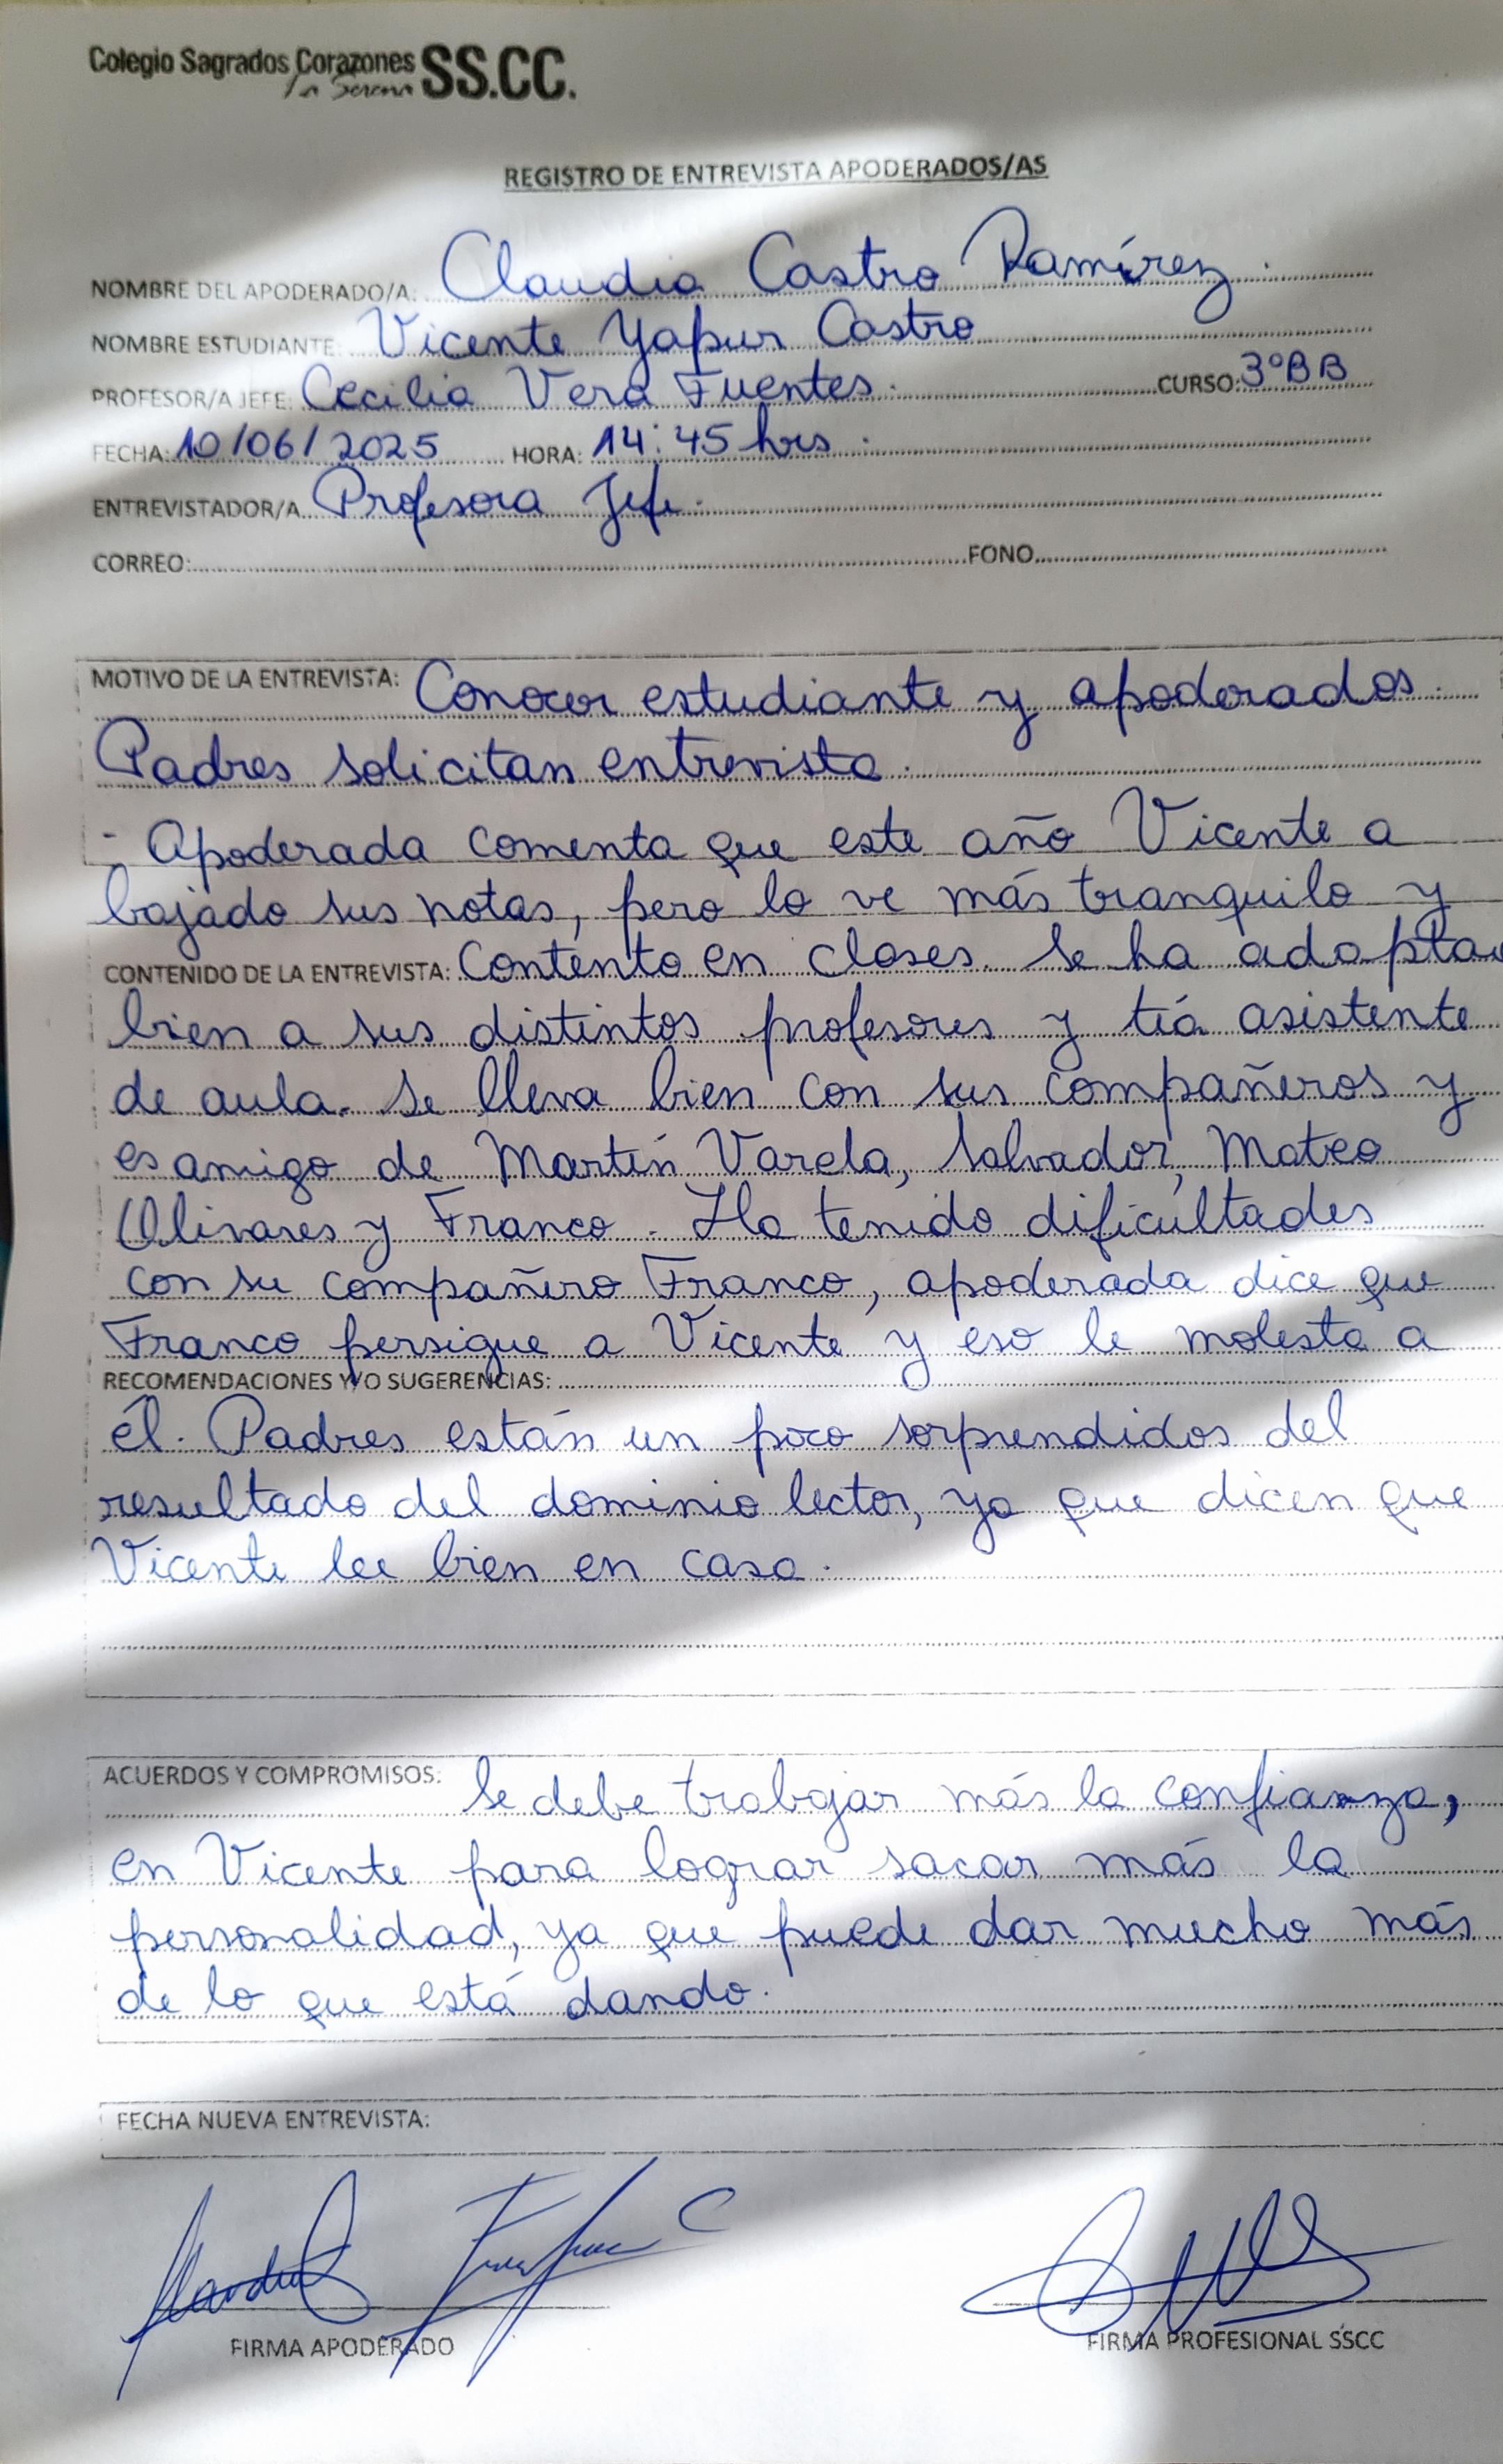 Colegio Sagrados Corazones SS.CC.
La Serena
REGISTRO DE ENTREVISTA APODERADOS/AS
NOMBRE DEL APODERADO/A: Claudia Castro Ramírez.
NOMBRE ESTUDIANTE: Vicente Yapur Castro
PROFESOR/A JEFE: Cecilia Vera Fuentes. CURSO: 3°BB
FECHA: 10/06/2025 HORA: 14:45 hrs.
ENTREVISTADOR/A Profesora Jefe.
CORREO: FONO
MOTIVO DE LA ENTREVISTA: Conocer estudiante y apoderados.
Padres solicitan entrevista.
- Apoderada comenta que este año Vicente a
bajado sus notas, pero lo ve más tranquilo y
CONTENIDO DE LA ENTREVISTA: Contento en clases. Se ha adapta
bien a sus distintos profesores y tía asistente
de aula. Se lleva bien con sus compañeros y
es amigo de Martín Varela, Salvador, Mateo
Olivares y Franco. Ha tenido dificultades
con su compañero Franco, apoderada dice que
Franco persigue a Vicente y eso le molesta a
RECOMENDACIONES Y/O SUGERENCIAS:
él. Padres están un poco sorprendidos del
resultado del dominio lector, ya que dicen que
Vicente lee bien en casa.
ACUERDOS Y COMPROMISOS: Se debe trabajar más la confianza,
en Vicente para lograr sacar más la
personalidad, ya que puede dar mucho más
de lo que está dando.
FECHA NUEVA ENTREVISTA:
FIRMA APODERADO FIRMA PROFESIONAL SSCC